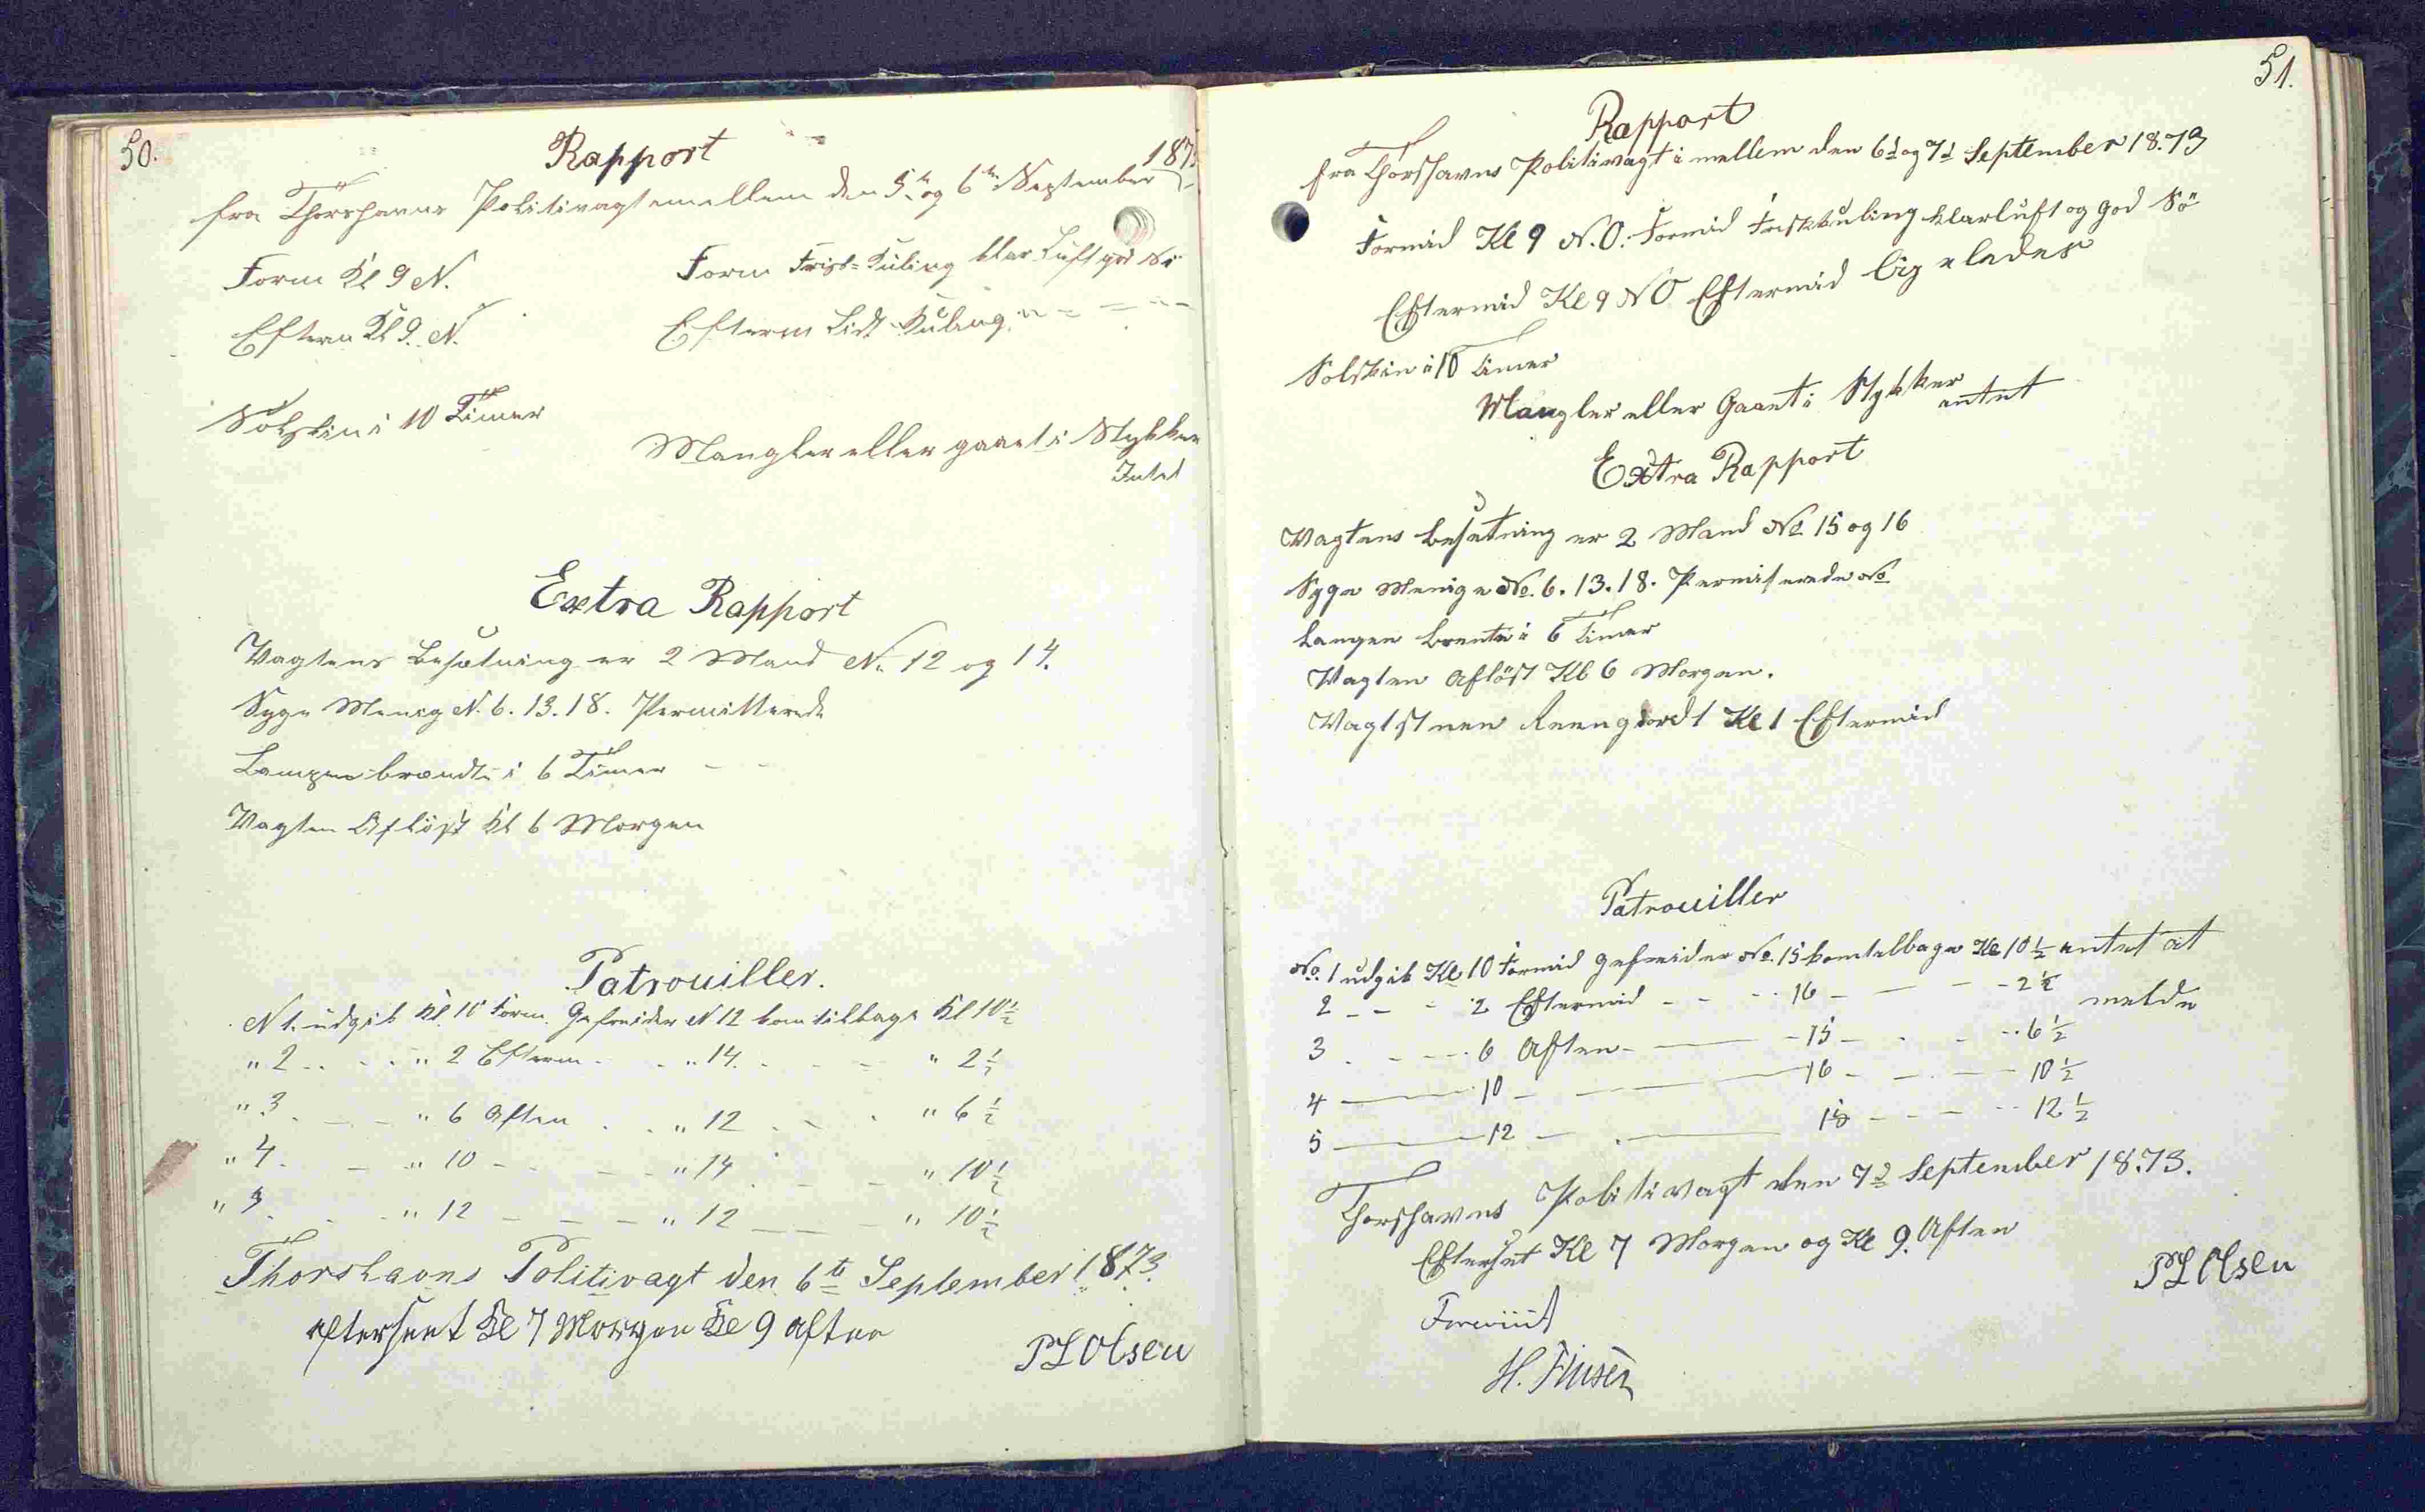 50.
Rapport
187
fra Thorshavns Politivagt emellem den 5te og 6te September
Form Kl 9 N. Form Frisk-Kuling klar Luft god Sö
Efterm Kl 9. N. Efterm Lidt Kuling " = = " -
Solskin i 10 Timer
Mangler eller gaaet i Stykker
Intet
Extra Rapport
Vagtens Besætning er 2 Mand N. 12 og 14.
Syge Menig N. 6. 13. 18. Permitterede
Lampen brændte i 6 Timer - -
Vagten Aflöst Kl 6 Morgen
Patrouiller.
N 1. udgik Kl. 10 Form. Gefreider N 12 kom tilbage Kl 10½
" 2 - - - " 2 Efterm - - " 14. - - " 2½
" 3 - - - " 6 Aften - - " 12 - - " 6½
" 4 - - " 10 - - - " 14 - - " 10½
" 5 - - " 12 - - - " 12 - - " 10½
Thorshavns Politivagt den 6te September 1873.
efterseet Kl 7 Morgen Kl 9 aften
PL Olsen
51.
Rapport
fra Thorshavns Politivagt i mellem den 6d og 7d September 18.73
Formid Kl 9 N.O. Formid Friskkuling klarluft og god Sö
Eftermid Kl 9 NO Eftermid ligeledes
Solskin i 10 Timer
Mangler eller Gaaet i Stykker
intet
Extra Rapport
Vagtens besetning er 2 Mand No 15 og 16
Syge Menige No. 6. 13. 18. Permiterede No
Lampen brente i 6 Timer
Vagten Aflöst Kl 6 Morgen.
Vagtstuen Reengjordt Kl 1 Eftermid
Patrouiller
No. 1 udgik Kl 10 Formid gefreider No. 15 kom telbage Kl 10½ entet at
2 - - - 2 Eftermid - - - 16 - - - 2½ melde
3 - - - 6 Aften - - 15 - - - 6½
4 - 10 - - 16 - - - 10½
5 - 12 - - 15 - - - 12½
Thorshavns Politivagt den 7d September 18.73.
Efterset Kl 7 Morgen og Kl 9. Aften
PL Olsen
Foreviist
H. Finsen